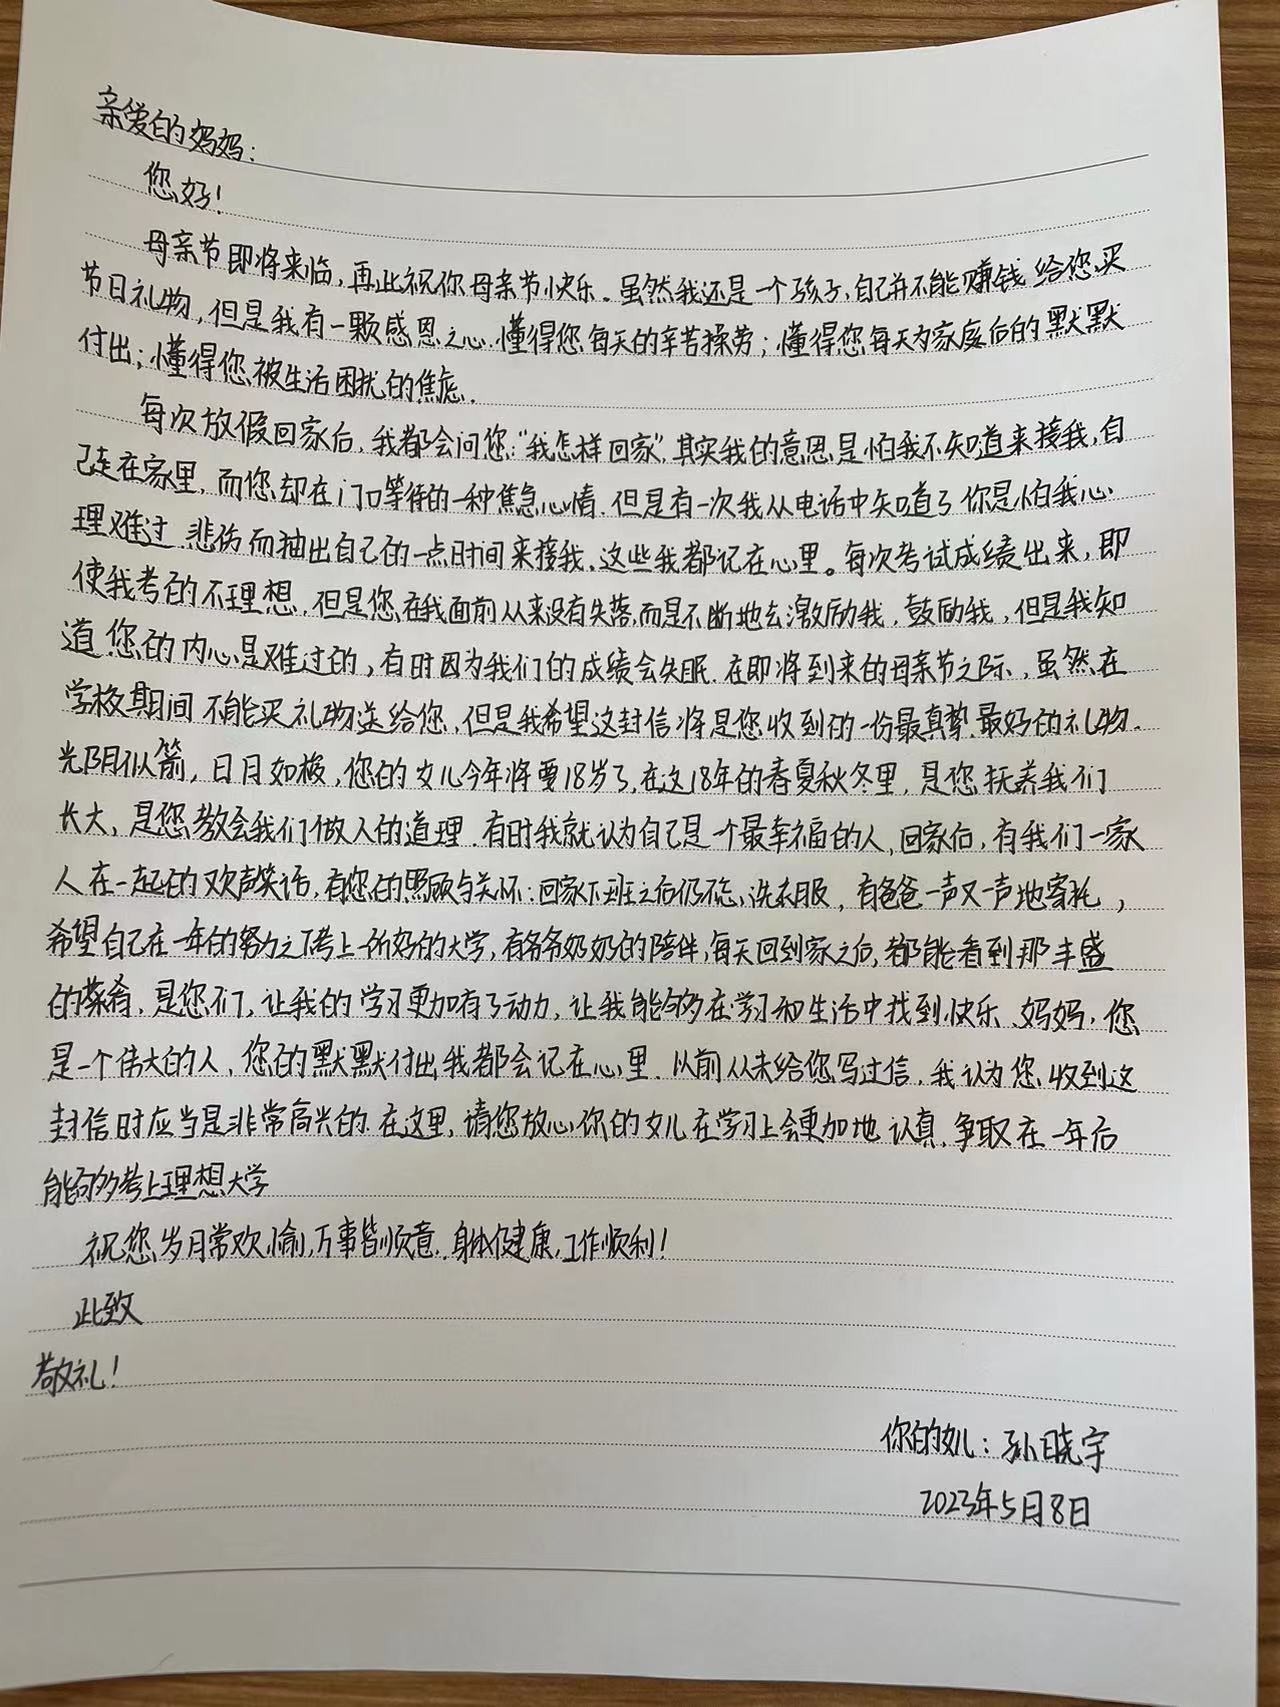 亲爱的妈妈:
您好!
母亲节即将来临,再此祝你母亲节快乐。虽然我还是一个孩子,自己并不能赚钱给您买
节日礼物,但是我有一颗感恩之心.懂得您每天的辛苦操劳;懂得您每天为家庭后的默默
付出;懂得您被生活困扰的焦虑.
每次放假回家后,我都会问您:“我怎样回家”,其实我的意思是怕我不知道来接我,自
己走在家里,而您却在门口等待的一种焦急心情.但是有一次我从电话中知道了你是怕我心
理难过悲伤而抽出自己的一点时间来接我.这些我都记在心里。每次考试成绩出来,即
使我考的不理想,但是您在我面前从来没有失落,而是不断地去激励我,鼓励我,但是我知
道您的内心是难过的,有时因为我们的成绩会失眠.在即将到来的母亲节之际,虽然在
学校期间不能买礼物送给您,但是我希望这封信将是您收到的一份最真挚.最好的礼物.
光阴似箭,日月如梭,您的女儿今年将要18岁了,在这18年的春夏秋冬里,是您抚养我们
长大,是您教会我们做人的道理.有时我就认为自己是一个最幸福的人,回家后,有我们一家
人在一起的欢声笑话,有您的照顾与关怀:回家下班之后仍不忘洗衣服,有爸爸一声又一声地寄托,
希望自己在一年的努力之下考上一所好的大学,有爷爷奶奶的陪伴,每天回到家之后,都能看到那丰盛
的菜肴,是您们,让我的学习更加有了动力,让我能够在学习和生活中找到快乐、妈妈,您
是一个伟大的人、您的默默付出我都会记在心里.以前从未给您写过信,我认为您收到这
封信时应当是非常高兴的.在这里,请您放心你的女儿在学习上会更加地认真,争取在一年后
能够考上理想大学
祝您岁月常欢愉,万事皆顺意.身体健康,工作顺利!
此致
敬礼!
你的女儿:孙晓宇
2023年5月8日